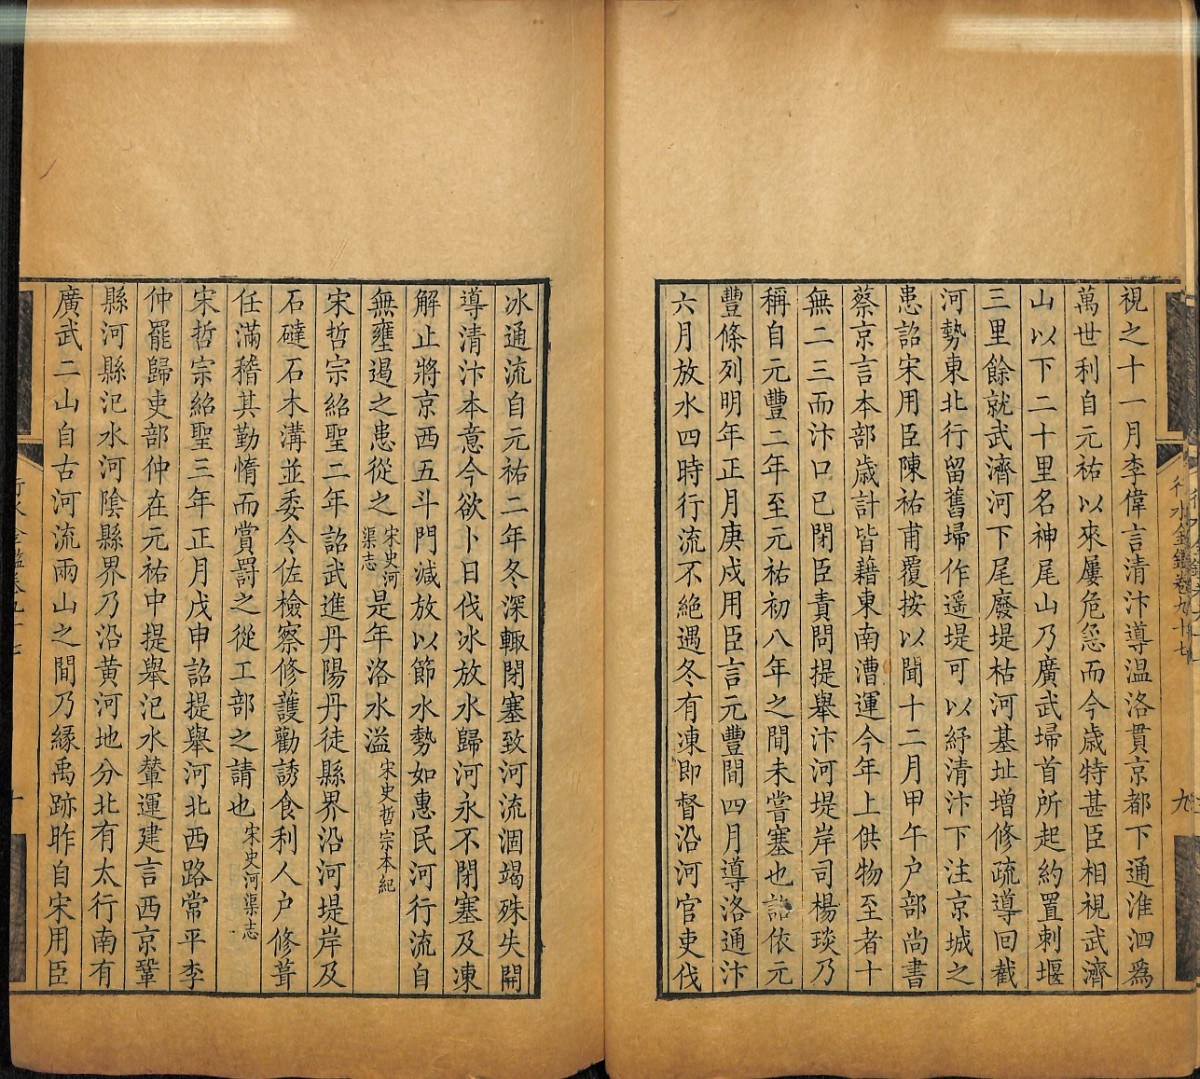 視之十一月李偉言清汴導温洛貫京都下通淮泗為
萬世利自元祐以來屢危急而今歲特甚臣相視武濟
山以下二十里名神尾山乃廣武埽首所起約置刺堰
三里餘就武濟河下尾廢堤枯河基址增修疏導回截
河勢東北行留舊埽作遥堤可以紓清汴下注京城之
患詔宋用臣陳祐甫覆按以聞十二月甲午户部尚書
蔡京言本部歲計皆藉東南漕運今年上供物至者十
無二三而汴口已閉臣責問提舉汴河堤岸司楊琰乃
稱自元豐二年至元祐初八年之間未嘗塞也詔依元
豐條列明年正月庚戌用臣言元豐間四月導洛通汴
六月放水四時行流不絶遇冬有凍即督沿河官吏伐
行水金鑑卷九十七
九
冰通流自元祐二年冬深輙閉塞致河流涸竭殊失開
導清汴本意今欲卜日伐冰放水歸河永不閉塞及凍
解止將京西五斗門減放以節水勢如惠民河行流自
無壅遏之患從之宋史河渠志是年洛水溢宋史哲宗本紀
宋哲宗紹聖二年詔武進丹陽丹徒縣界沿河堤岸及
石䃮石木溝並委令佐檢察修護勸誘食利人户修葺
任滿稽其勤惰而賞罰之從工部之請也宋史河渠志
宋哲宗紹聖三年正月戊申詔提舉河北西路常平李
仲罷歸吏部仲在元祐中提舉汜水輦運建言西京鞏
縣河縣汜水河陰縣界乃沿黄河地分北有太行南有
廣武二山自古河流兩山之間乃緣禹跡昨自宋用臣